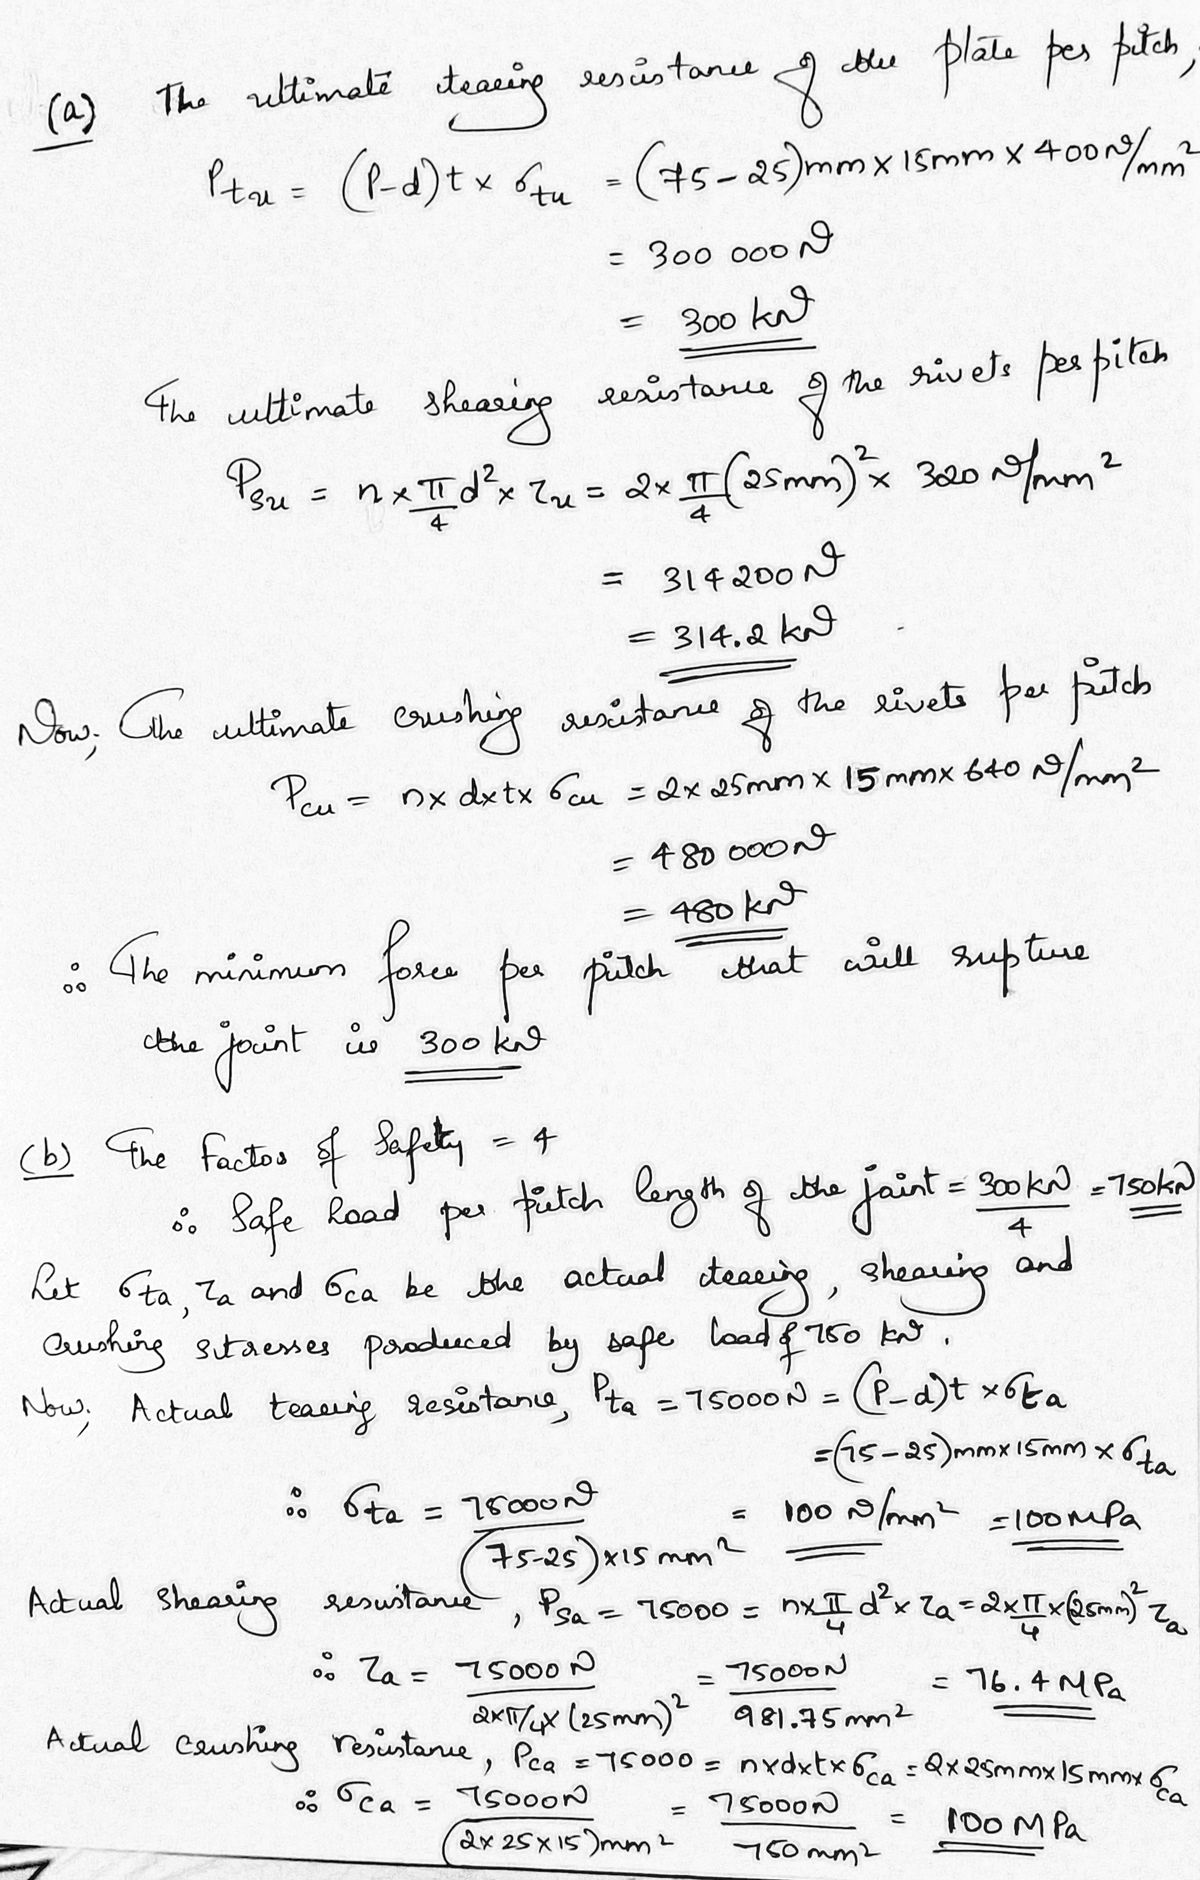 (a) The ultimate tearing resistance of the plate per pitch,
Ptu = (P-d)t x σtu = (75-25)mm x 15mm x 400N/mm²
= 300 000 N
= 300 kN
The ultimate shearing resistance of the rivets per pitch
Psu = n x π/4 d² x τu = 2 x π/4 (25mm)² x 320 N/mm²
= 314200 N
= 314.2 kN
Now, The ultimate crushing resistance of the rivets per pitch
Pcu = n x d x t x σcu = 2 x 25mm x 15mm x 640 N/mm²
= 480 000 N
= 480 kN
∴ The minimum force per pitch that will rupture
the joint is 300 kN
(b) The Factor of Safety = 4
∴ Safe Load per pitch length of the joint = 300kN/4 = 750kN
Let σta, τa and σca be the actual tearing, shearing and
Crushing stresses produced by safe load of 750 kN.
Now, Actual tearing resistance, Pta = 75000N = (P-d)t x σta
= (75-25)mm x 15mm x σta
∴ σta = 75000N/(75-25) x 15 mm² = 100 N/mm² = 100 MPa
Actual Shearing resistance, Psa = 75000 = n x π/4 d² x τa = 2 x π/4 x (25mm)² τa
∴ τa = 75000N/2xπ/4x(25mm)² = 75000N/981.75mm² = 76.4 MPa
Actual Crushing resistance, Pca = 75000 = n x d x t x σca = 2 x 25mm x 15mm x σca
∴ σca = 75000N/(2x25x15)mm² = 75000N/750mm² = 100 MPa